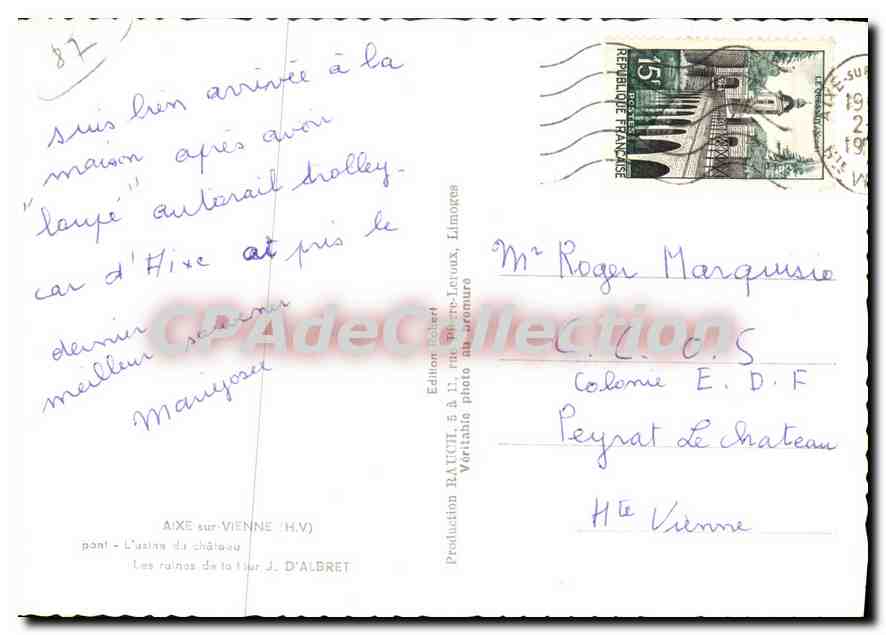 87
suis bien arrivée à la
maison après avoir
"loupé" autorail trolley-
car d'Aixe et pris le
dernier
meilleur souvenir
Mariejosée
AIXE sur-VIENNE (H.V)
pont - L'usine du château
Les ruines de la tour J. D'ALBRET
Edition Robert
Production RAUCH, 5 à 11, rue Pierre-Leroux, Limoges
Véritable photo au bromure
15F
POSTES
REPUBLIQUE FRANÇAISE
LE QUESNOY
AIXE-SUR-
CPAdeCollection
Mr Roger Marquisio
C. C. O. S
Colonie E. D. F
Peyrat Le Chateau
Hte Vienne